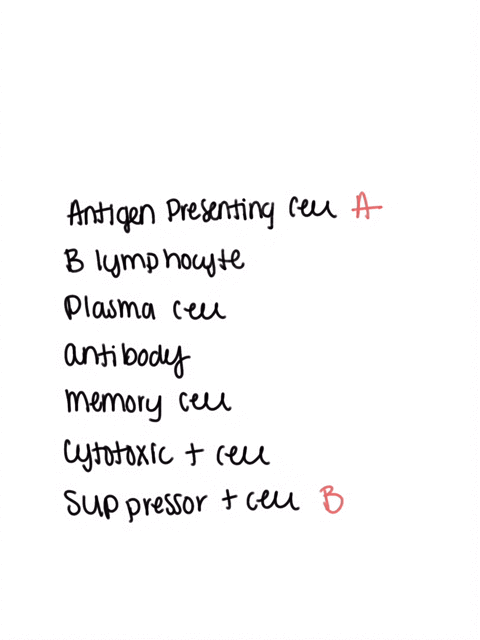 Antigen Presenting cell A
B lymphocyte
Plasma cell
antibody
memory cell
Cytotoxic t cell
Suppressor t cell B